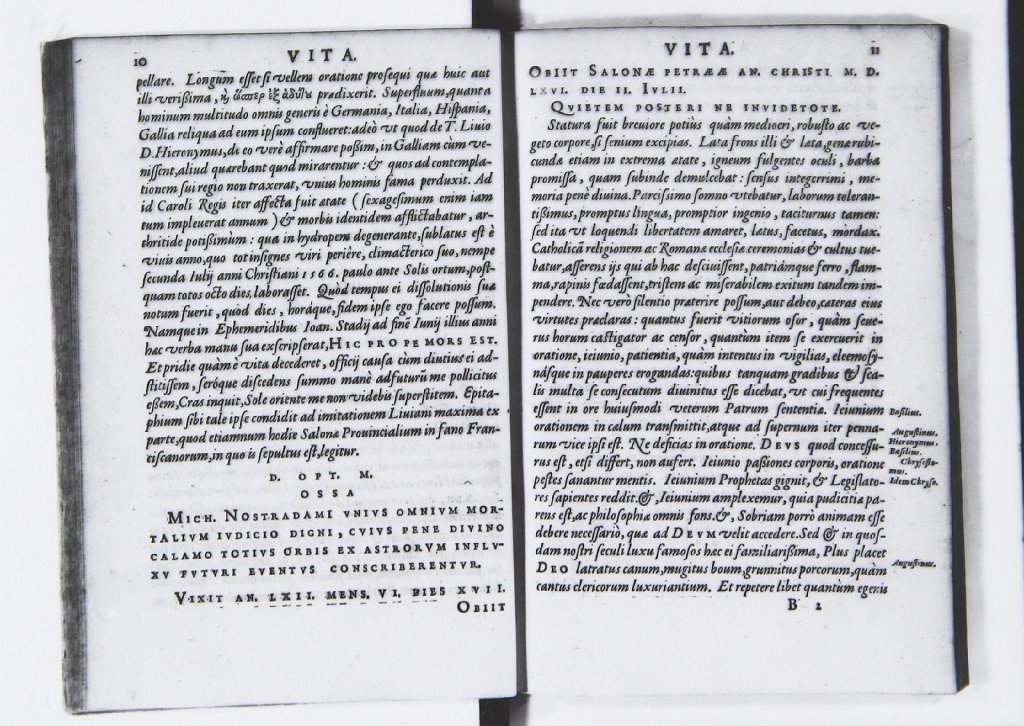 10
VITA.
pellare. Longum esset si vellem oratione prosequi quæ huic aut
illi verißima, prædixerit. Superfluum, quanta
hominum multitudo omnis generis è Germania, Italia, Hispania,
Gallia reliqua ad eum ipsum conflueret: adeò vt quod de T. Liuio
D. Hieronymus, de eo verè affirmare poßim, in Galliam cùm ve-
nissent, aliud quærebant quod mirarentur: & quos ad contempla-
tionem sui regio non traxerat, vnius hominis fama perduxit. Ad
id Caroli Regis iter affecta fuit ætate ( sexagesimum enim iam
tum impleuerat annum ) & morbis identidem afflictabatur, ar-
thritide potißimum: quæ in hydropem degenerante, sublatus est è
viuis anno, quo tot insignes viri periêre, climacterico suo, nempe
secunda Iulij anni Christiani 1566. paulo ante Solis ortum, post-
quam totos octo dies laborasset. Quod tempus ei dissolutionis suæ
notum fuerit, quòd dies, horáque, fidem ipse ego facere possum.
Namque in Ephemeridibus Ioan. Stadij ad finẽ Iunij illius anni
hæc verba manu sua exscripserat, HIC PROPE MORS EST.
Et pridie quàm è vita decederet, officij causa cùm diutius ei ad-
stitissem, seróque discedens summo manè adfuturũ me pollicitus
eßem, Cras inquit, Sole oriente me non videbis superstitem. Epita-
phium sibi tale ipse condidit ad imitationem Liuiani maxima ex
parte, quod etiamnum hodie Salonæ Prouincialium in fano Fran-
ciscanorum, in quo is sepultus est, legitur.
D. OPT. M.
OSSA
MICH. NOSTRADAMI VNIVS OMNIVM MOR-
TALIVM IVDICIO DIGNI, CVIVS PENE DIVINO
CALAMO TOTIVS ORBIS EX ASTRORVM INFLV-
XV FVTVRI EVENTVS CONSCRIBERENTVR.
VIXIT AN. LXII. MENS. VI. DIES XVII.
OBIIT
VITA.
11
OBIIT SALONÆ PETRÆÆ AN. CHRISTI M. D.
LXVI. DIE II. IVLII.
QVIETEM POSTERI NE INVIDETOTE.
Statura fuit breuiore potiùs quàm mediocri, robusto ac ve-
geto corpore, si senium excipias. Lata frons illi & læta, genæ rubi-
cundæ etiam in extrema ætate, igneum fulgentes oculi, barba
promissa, quam subinde demulcebat: sensus integerrimi, me-
moria penè diuina. Parcißimo somno vtebatur, laborum toleran-
tißimus, promptus lingua, promptior ingenio, taciturnus tamen:
sed ita vt loquendi libertatem amaret, lætus, facetus, mordax.
Catholicã religionem ac Romanæ ecclesiæ ceremonias & cultus tue-
batur, asserens ijs qui ab hac desciuissent, patriámque ferro, flam-
ma, rapinis fœdassent, tristem ac miserabilem exitum tandem im-
pendere. Nec verò silentio præterire possum, aut debeo, cæteras eius
virtutes præclaras: quantus fuerit vitiorum osor, quàm seue-
rus horum castigator ac censor, quantùm item se exercuerit in
oratione, ieiunio, patientia, quàm intentus in vigilias, eleemosy-
násque in pauperes erogandas: quibus tanquam gradibus & sca-
lis multa se consecutum diuinitus esse dicebat, vt cui frequentes
essent in ore huiusmodi veterum Patrum sententiæ. Ieiunium
orationem in cælum transmittit, atque ad supernum iter penna-
rum vice ipsi est. Ne deficias in oratione. DEVS quod concessu-
rus est, etsi differt, non aufert. Ieiunio paßiones corporis, oratione
pestes sanantur mentis. Ieiunium Prophetas gignit, & Legislato-
res sapientes reddit. &, Ieiunium amplexemur, quia pudicitiæ pa-
rens est, ac philosophiæ omnis fons. &, Sobriam porrò animam esse
debere necessariò, quæ ad DEVM velit accedere. Sed & in quos-
dam nostri seculi luxu famosos hæc ei familiarißima, Plus placet
DEO latratus canum, mugitus boum, grunnitus porcorum, quàm
cantus clericorum luxuriantium. Et repetere libet quantum egenis
B 2
Basilius.
Augustinus.
Hieronymus.
Basilius.
Chrysosto-
mus.
Idem Chryso.
Augustinus.